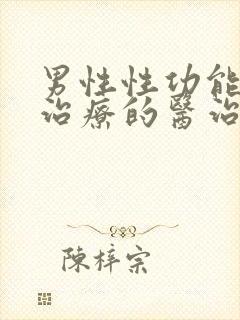 男性性功能
治療的醫治
陳梓宗